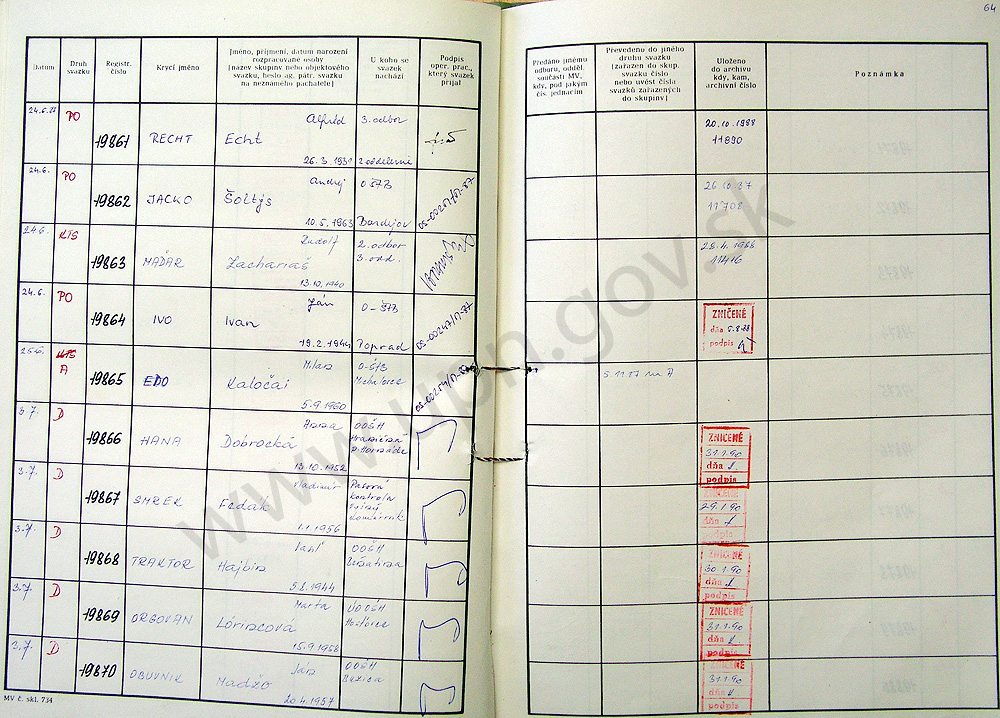 64
Datum
Druh
svazku
Registr.
číslo
Krycí jméno
Jméno, příjmení, datum narození
rozpracované osoby
(název skupiny nebo objektového
svazku, heslo ag. pátr. svazku
na neznámého pachatele)
U koho se
svazek
nachází
Podpis
oper. prac.,
který svazek
přijal
Předáno jinému
odboru, odděl.
součásti MV,
kdy, pod jakým
čís. jednacím
Převedeno do jiného
druhu svazku
(zařazen do skup.
svazku číslo
nebo uvést čísla
svazků zařazených
do skupiny)
Uloženo
do archivu
kdy, kam,
archivní číslo
Poznámka
24.6.87 PO 19861 RECHT Echt Alfréd 26.3.1931 3. odbor 2 oddelenie
20.10.1988
11890
24.6. PO 19862 JACKO Šoltýs Andrej 10.5.1963 O-ŠTB Bardejov
26 10 87
11708
24.6. KTS 19863 MAĎAR Zachariáš Rudolf 13.10.1940 2. odbor 3. odd.
28.4.1988
11416
24.6. PO 19864 IVO Ivan Ján 19.2.1944 O-ŠTB Poprad
ZNIČENÉ
dňa 5.8.88
podpis
25.6. KTS A 19865 EDO Kaločai Milan 5.9.1960 O-ŠTB Michalovce
5.11.87 na A
3.7. D 19866 HANA Dobrocká Anna 13.10.1952 OOŠH
ZNIČENÉ
31.1.90
dňa
podpis
3.7. D 19867 SMREK Fedák Vladimír 1.1.1956 Pasová kontrola
ZNIČENÉ
29.1.90
dňa
podpis
3.7. D 19868 TRAKTOR Hajbin 5.8.1944 OOŠH
ZNIČENÉ
30.1.90
dňa
podpis
3.7. D 19869 ORGOVAN Lörincová Marta 15.9.1958 OOŠH
ZNIČENÉ
31.1.90
dňa
podpis
3.7. D 19870 OBUVNIK Madžo Ján 20.4.1957 OOŠH Buzica
ZNIČENÉ
31.1.90
dňa
podpis
MV č. skl. 734
www.upn.gov.sk